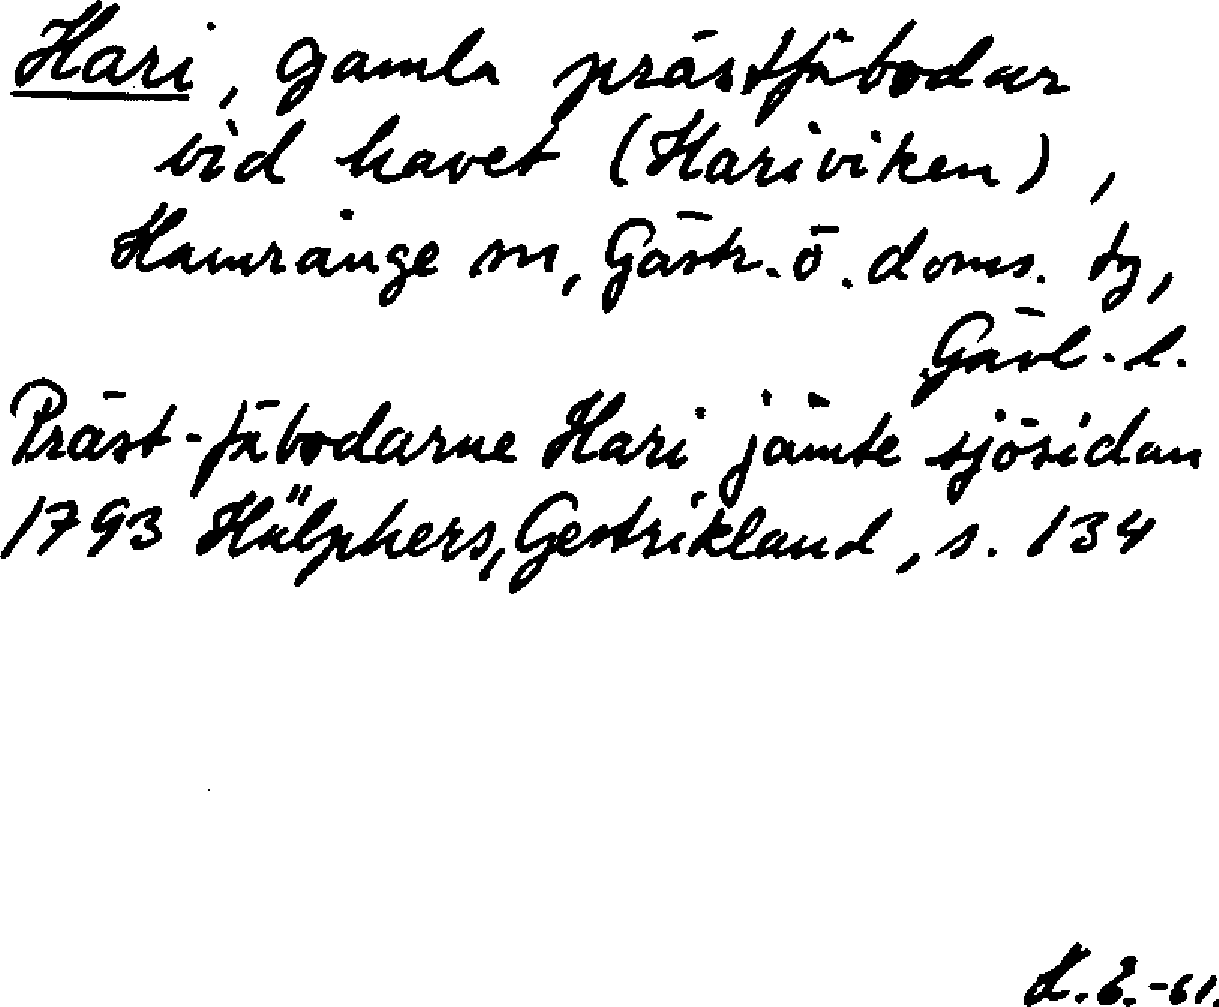 Hari, gamla prästfäbodar
vid havet (Hariviken),
Hamrånge sn, Gästr. ö. doms. tg,
Gävl. l.
Präst-fäbodarne Hari jämte sjösidan
1793 Hülphers, Gestrikland, s. 134
H.E.-61.